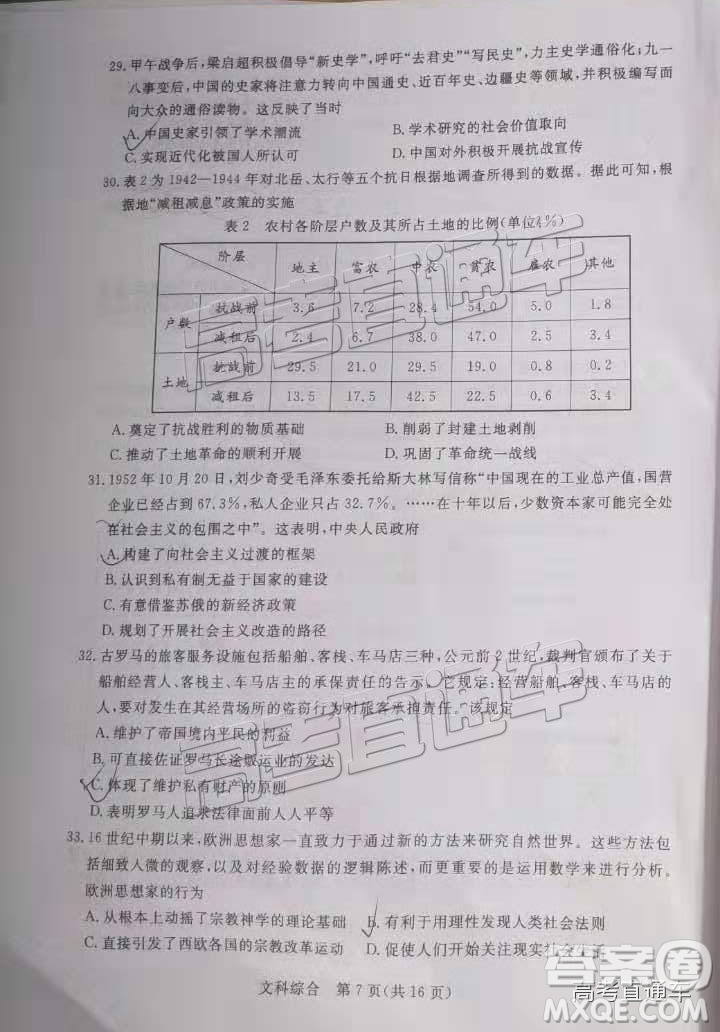 29.甲午战争后,梁启超积极倡导“新史学”,呼吁“去君史”“写民史”,力主史学通俗化;九一
八事变后,中国的史家将注意力转向中国通史、近百年史、边疆史等领域,并积极编写面
向大众的通俗读物。这反映了当时
A.中国史家引领了学术潮流 B.学术研究的社会价值取向
C.实现近代化被国人所认可 D.中国对外积极开展抗战宣传
30.表2为1942—1944年对北岳、太行等五个抗日根据地调查所得到的数据。据此可知,根
据地“减租减息”政策的实施
表2 农村各阶层户数及其所占土地的比例(单位:%)
阶层 地主 富农 中农 贫农 雇农 其他
户数 抗战前 3.6 7.2 28.4 54.0 5.0 1.8
减租后 2.4 6.7 38.0 47.0 2.5 3.4
土地 抗战前 29.5 21.0 29.5 19.0 0.8 0.2
减租后 13.5 17.5 42.5 22.5 0.6 3.4
A.奠定了抗战胜利的物质基础 B.削弱了封建土地剥削
C.推动了土地革命的顺利开展 D.巩固了革命统一战线
31.1952年10月20日,刘少奇受毛泽东委托给斯大林写信称“中国现在的工业总产值,国营
企业已经占到67.3%,私人企业只占32.7%。……在十年以后,少数资本家可能完全处
在社会主义的包围之中”。这表明,中央人民政府
A.构建了向社会主义过渡的框架
B.认识到私有制无益于国家的建设
C.有意借鉴苏俄的新经济政策
D.规划了开展社会主义改造的路径
32.古罗马的旅客服务设施包括船舶、客栈、车马店三种,公元前2世纪,裁判官颁布了关于
船舶经营人、客栈主、车马店主的承保责任的告示。它规定:经营船舶、客栈、车马店的
人,要对发生在其经营场所的盗窃行为对旅客承担责任。该规定
A.维护了帝国境内平民的利益
B.可直接佐证罗马长途贩运业的发达
C.体现了维护私有财产的原则
D.表明罗马人追求法律面前人人平等
33.16世纪中期以来,欧洲思想家一直致力于通过新的方法来研究自然世界。这些方法包
括细致入微的观察,以及对经验数据的逻辑陈述,而更重要的是运用数学来进行分析。
欧洲思想家的行为
A.从根本上动摇了宗教神学的理论基础 B.有利于用理性发现人类社会法则
C.直接引发了西欧各国的宗教改革运动 D.促使人们开始关注现实社会生活
文科综合 第7页(共16页)
高考直通车
高考直通车
答案圈
MXQE.COM
高考直通车